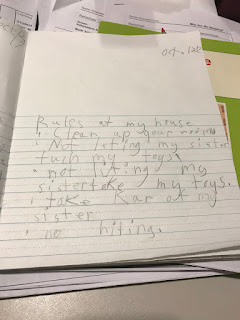 oct. 12
Rules at my house
· Clean up your
· Not leting my sister
tuch my toys
· not liting my
sistertake my toys.
· take Kar of my
sister
· no hiting.